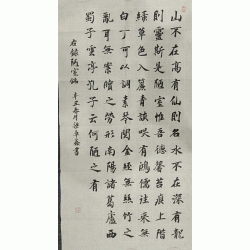 山不在高有仙則名水不在深有龍
則靈斯是陋室惟吾德馨苔痕上階
綠草色入簾青談咲有鴻儒往來無
白丁可以調素琴閱金經無絲竹之
亂耳無案牘之勞形南陽諸葛廬西
蜀子雲亭孔子云何陋之有
右録陋室銘 辛丑 月 書